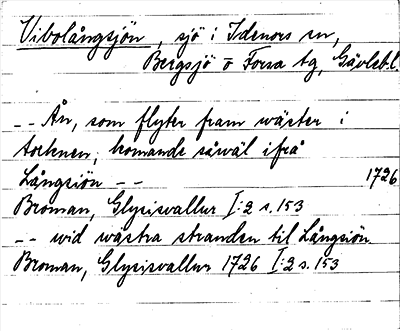 Vibolångsjön, sjö i Idenors sn,
Bergsjö o Forsa tg, Gävlebl.
-- Ån, som flyter fram wäster i
socknen, komande såwäl ifrå
Långsiön -- 1726
Broman, Glysisvallur I:2 s. 153
-- wid wästra stranden til Långsiön
Broman, Glysisvallur 1726 I:2 s. 153